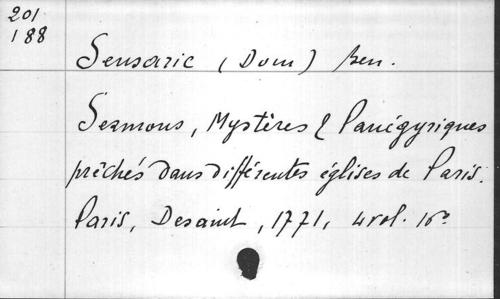 201
188
Sensaric (Dom) Ben.
Sermons, Mystères & Panégyriques
prêchés dans différentes églises de Paris.
Paris, Desaint, 1771, 4 vol. 16º